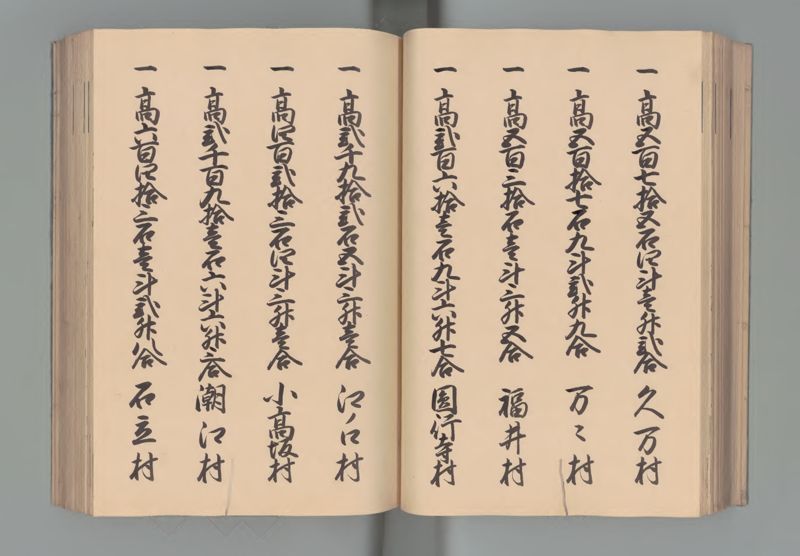 一 高五百七拾五石四斗壱升弐合 久万村
一 高五百拾七石九斗弐升九合 万々村
一 高五百三拾石壱斗三升五合 福井村
一 高弐百六拾壱石九斗六升七合 圓行寺村
一 高弐千九拾弐石五斗三升壱合 江ノ口村
一 高四百弐拾三石四斗三升壱合 小高坂村
一 高弐千百九拾壱石六斗六升六合 潮江村
一 高六百四拾三石壱斗弐升八合 石立村